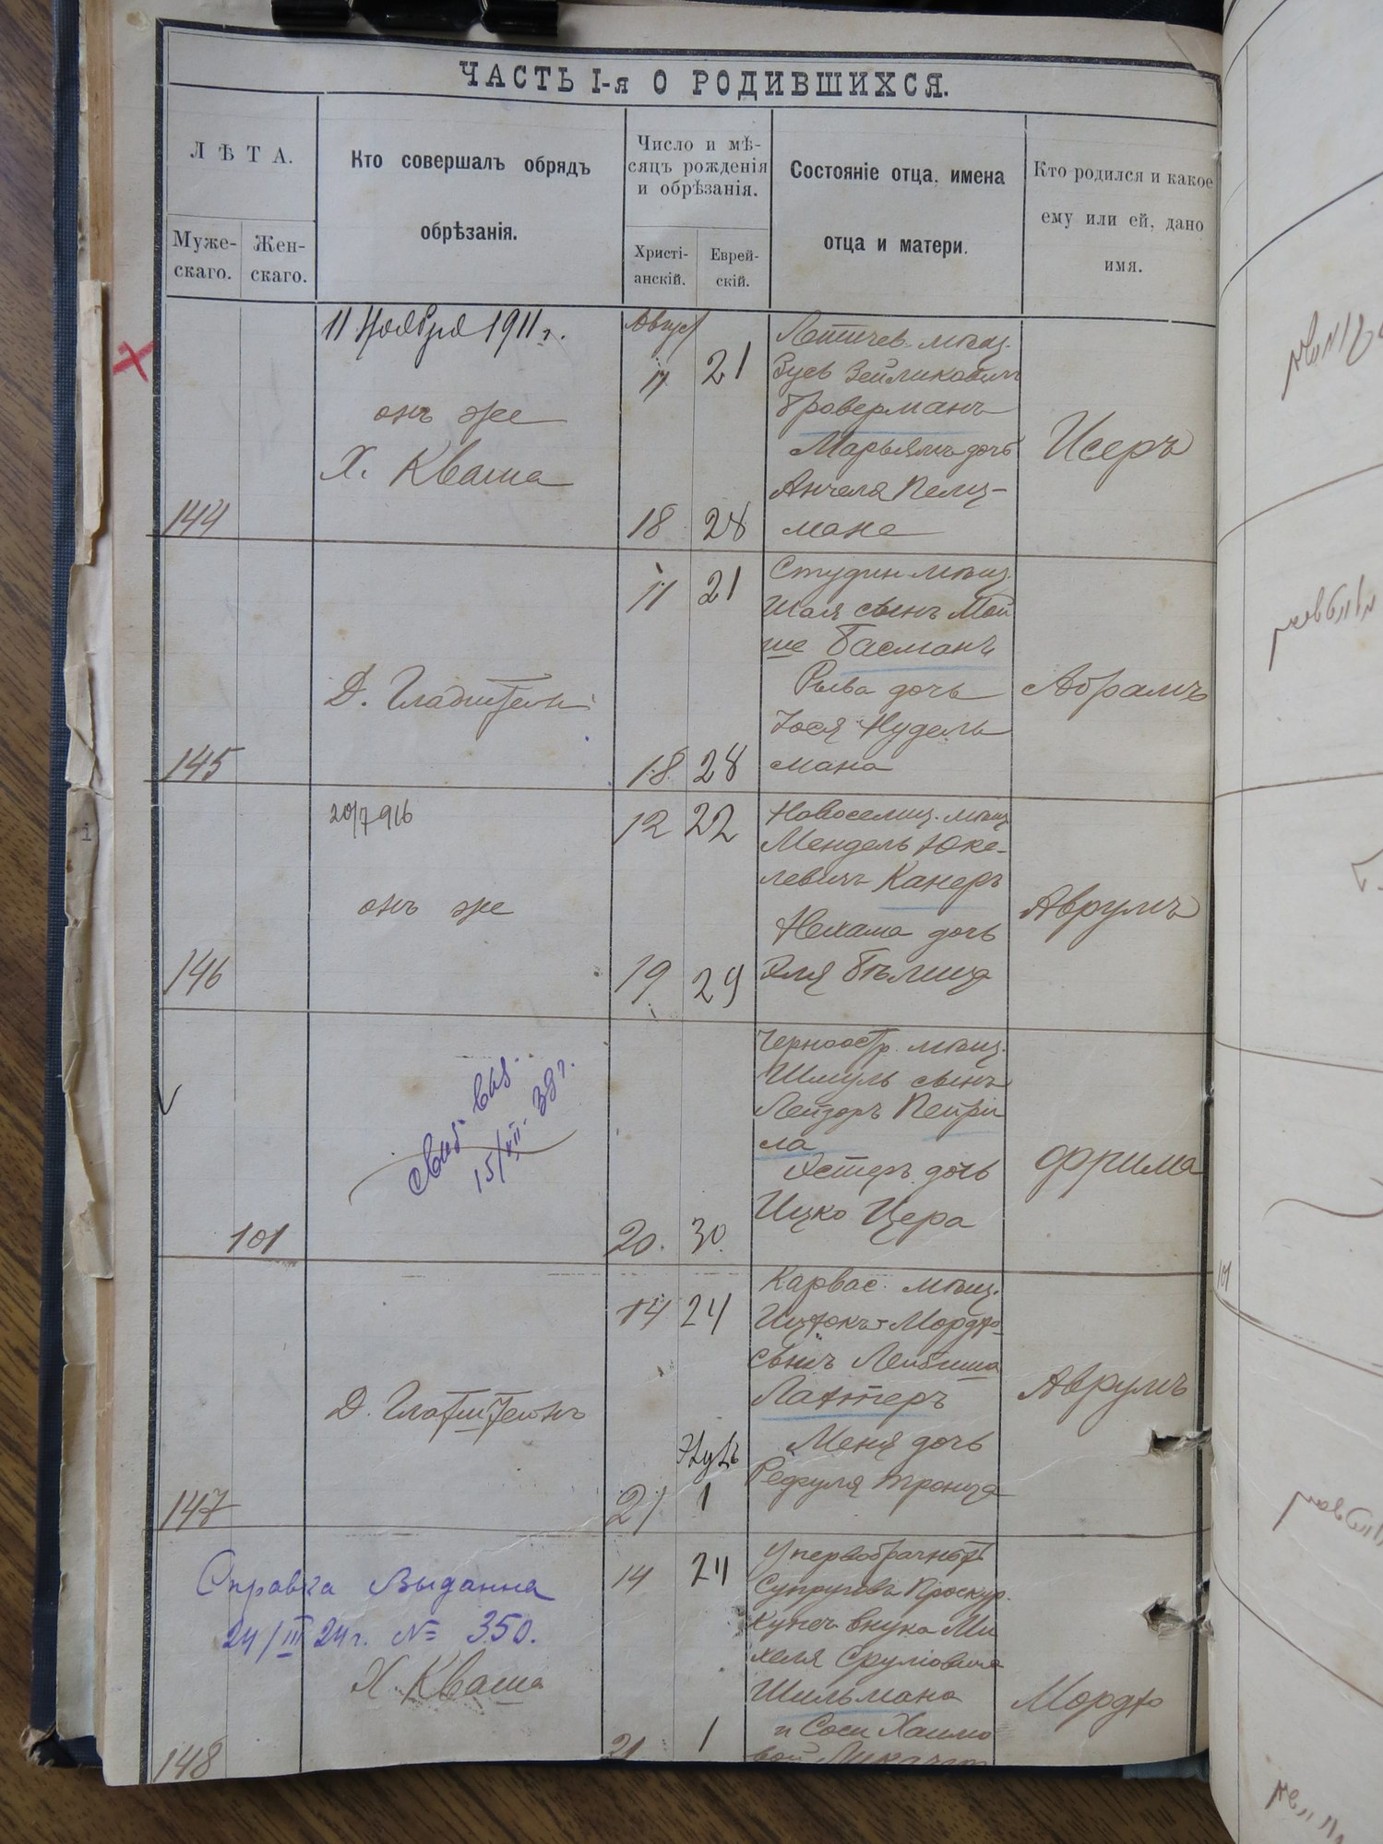 ЧАСТЬ I-я О РОДИВШИХСЯ.
ЛѢТА.
Муже-
скаго.
Жен-
скаго.
Кто совершалъ обрядъ
обрѣзанія.
Число и мѣ-
сяцъ рожденія
и обрѣзанія.
Христі-
анскій.
Еврей-
скій.
Состояніе отца, имена
отца и матери.
Кто родился и какое
ему или ей, дано
имя.
11 Ноября 1911 г.
онъ же
Х. Кваша
144
Август
11
21
18
28
Летичев. мѣщ.
Зусь Зейликовичъ
Броверманъ
Марьямъ дочь
Анчеля Пелц-
мана
Исеръ
Д. Гладштейнъ
145
11
21
18
28
Студин. мѣщ.
Шая сынъ Мой
ше Басманъ
Рыва дочь
Іося Нудель
мана
Абрамъ
20/7 916
онъ же
146
12
22
19
29
Новоселиц. мѣщ.
Мендель Юке-
левичъ Канеръ
Нехама дочь
Эля
Аврумъ
свид. выд.
15/VII 38 г.
101
20.
30.
Черноостр. мѣщ.
Шмуль сынъ
Лейзоръ
Эстеръ дочь
Ицко Цера
Фрима
Д. Глатштейнъ
147
14
24
21
1
Мордко
сынъ Лейбиша
Лахтеръ
Меня дочь
Аврумъ
Справка Выданна
24/III 24 г. № 350.
Х. Кваша
148
14
24
21
1
У первобрачныхъ
Супруговъ Проскур.
купеч. внука Ми
хеля Сруліовича
Шильмана
и Соси Хаимо
вой
Мордко
101